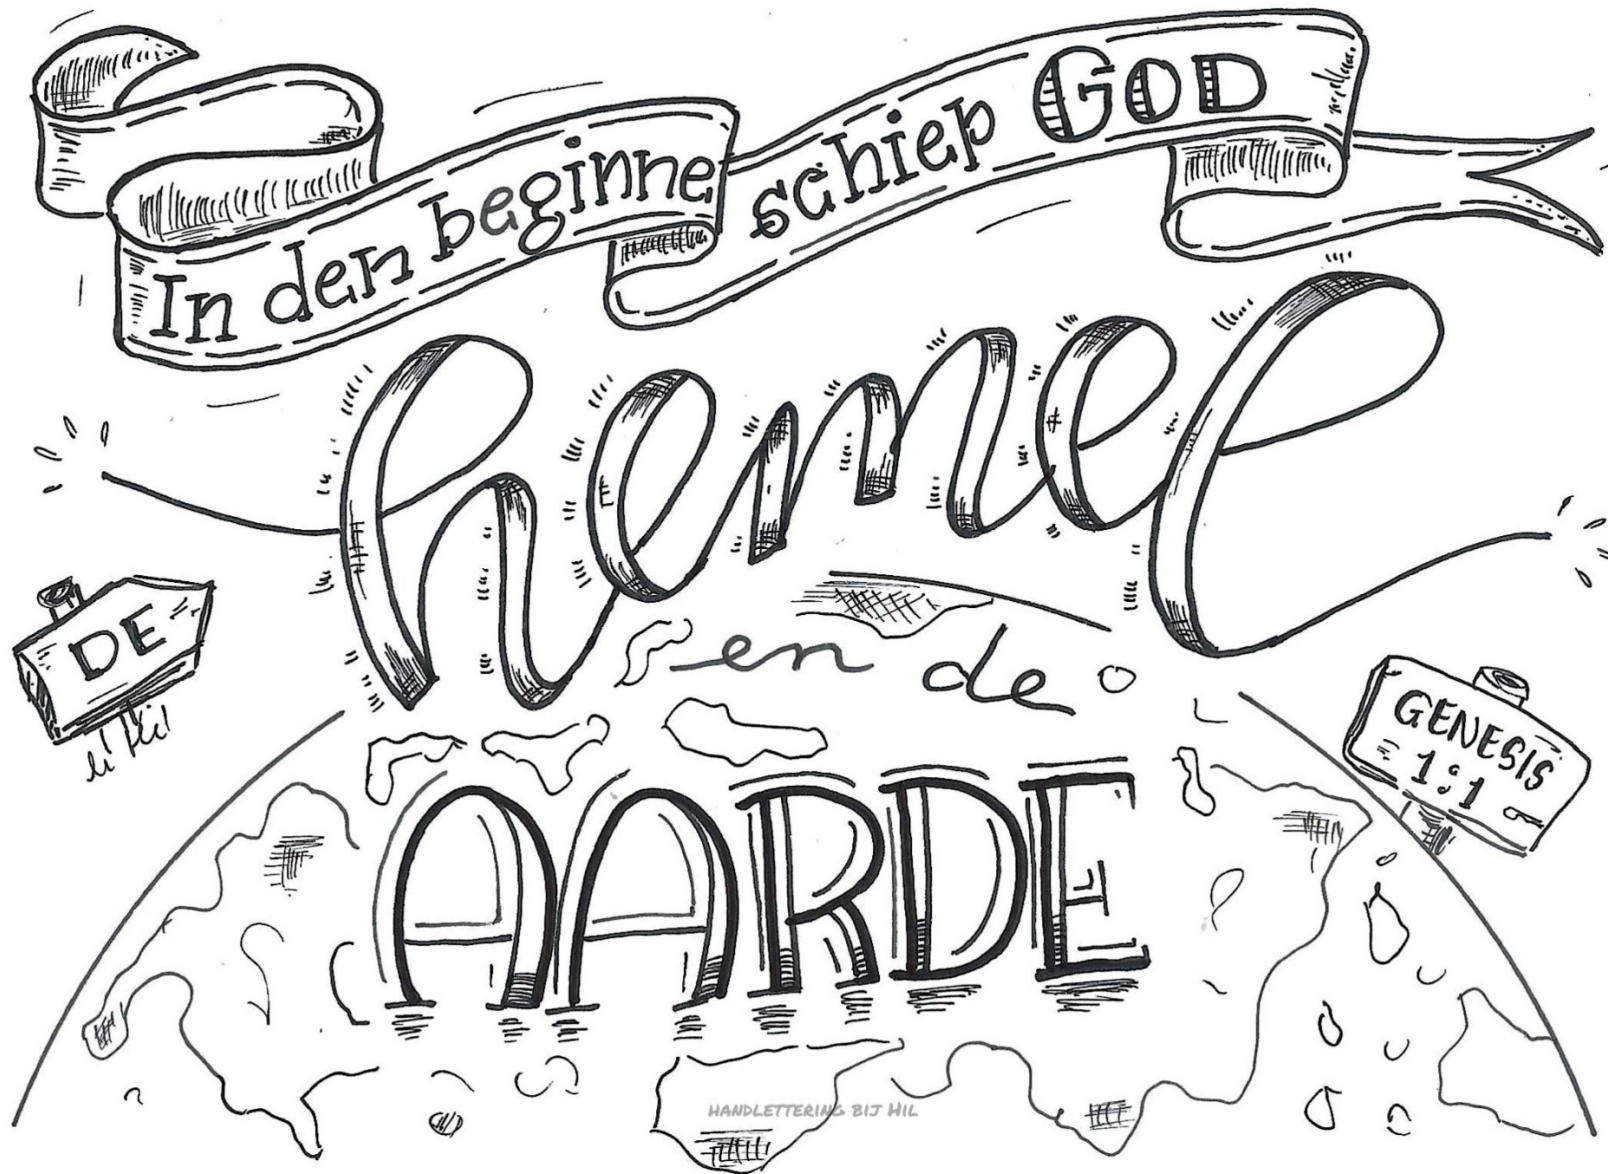 In den beginne schiep GOD
DE hemel
en de
AARDE
GENESIS
1:1
HANDLETTERING BIJ HIL